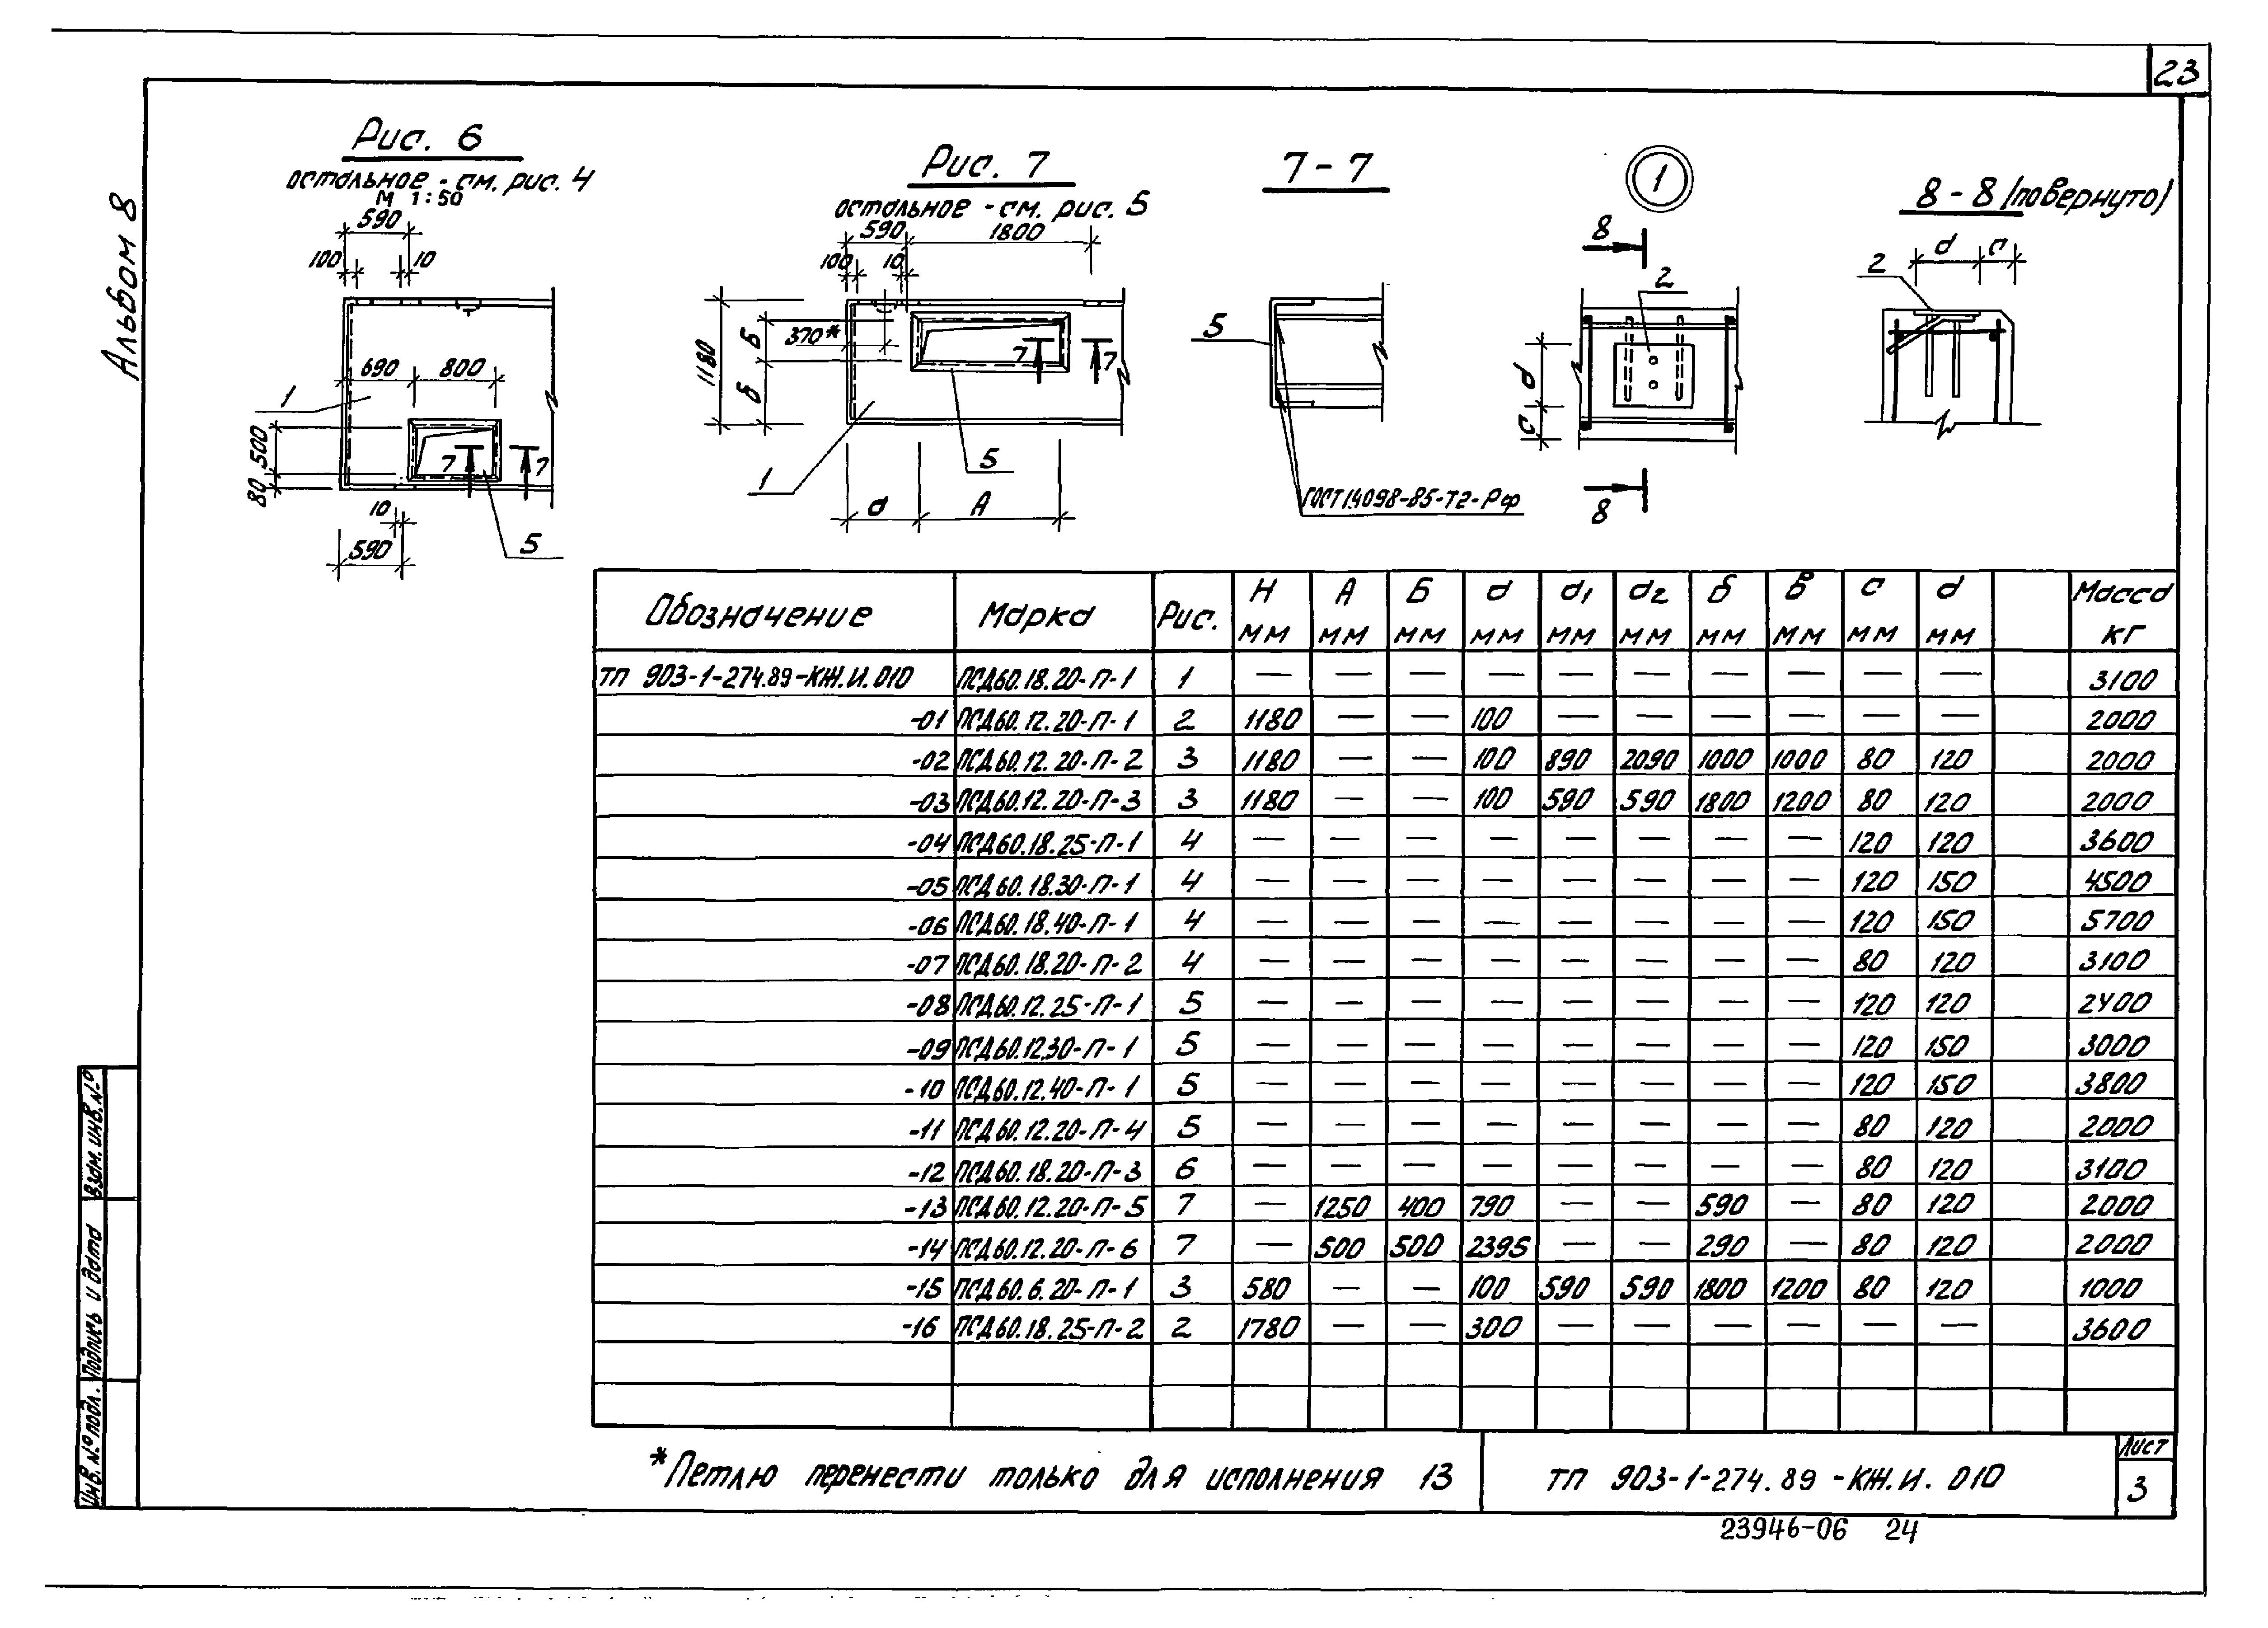 23
Альбом 8
Рис. 6
остальное - см. рис. 4
М 1:50
590
100
10
690
800
1
500
80
7
7
10
590
5
Рис. 7
остальное - см. рис. 5
590
1800
100
10
1180
Б
б
370*
7
7
5
1
а
А
7 - 7
5
ГОСТ 14098-85-Т2-Рф
1
8
2
d
c
8
8 - 8 (повернуто)
d
c
2
Обозначение Марка Рис. Н мм А мм Б мм а мм а1 мм а2 мм б мм в мм с мм d мм Масса кг
ТП 903-1-274.89-КЖ.И.010 ПСД60.18.20-П-1 1 — — — — — — — — — — 3100
-01 ПСД60.12.20-П-1 2 1180 — — 100 — — — — — — 2000
-02 ПСД60.12.20-П-2 3 1180 — — 100 890 2090 1000 1000 80 120 2000
-03 ПСД60.12.20-П-3 3 1180 — — 100 590 590 1800 1200 80 120 2000
-04 ПСД60.18.25-П-1 4 — — — — — — — — 120 120 3600
-05 ПСД60.18.30-П-1 4 — — — — — — — — 120 150 4500
-06 ПСД60.18.40-П-1 4 — — — — — — — — 120 150 5700
-07 ПСД60.18.20-П-2 4 — — — — — — — — 80 120 3100
-08 ПСД60.12.25-П-1 5 — — — — — — — — 120 120 2400
-09 ПСД60.12.30-П-1 5 — — — — — — — — 120 150 3000
-10 ПСД60.12.40-П-1 5 — — — — — — — — 120 150 3800
-11 ПСД60.12.20-П-4 5 — — — — — — — — 80 120 2000
-12 ПСД60.18.20-П-3 6 — — — — — — — — 80 120 3100
-13 ПСД60.12.20-П-5 7 — 1250 400 790 — — 590 — 80 120 2000
-14 ПСД60.12.20-П-6 7 — 500 500 2395 — — 290 — 80 120 2000
-15 ПСД60.6.20-П-1 3 580 — — 100 590 590 1800 1200 80 120 1000
-16 ПСД60.18.25-П-2 2 1780 — — 300 — — — — — — 3600
*Петлю перенести только для исполнения 13
ТП 903-1-274.89 -КЖ.И. 010
Лист
3
23946-06 24
Взам. инв. №
Подпись и дата
Инв. № подл.